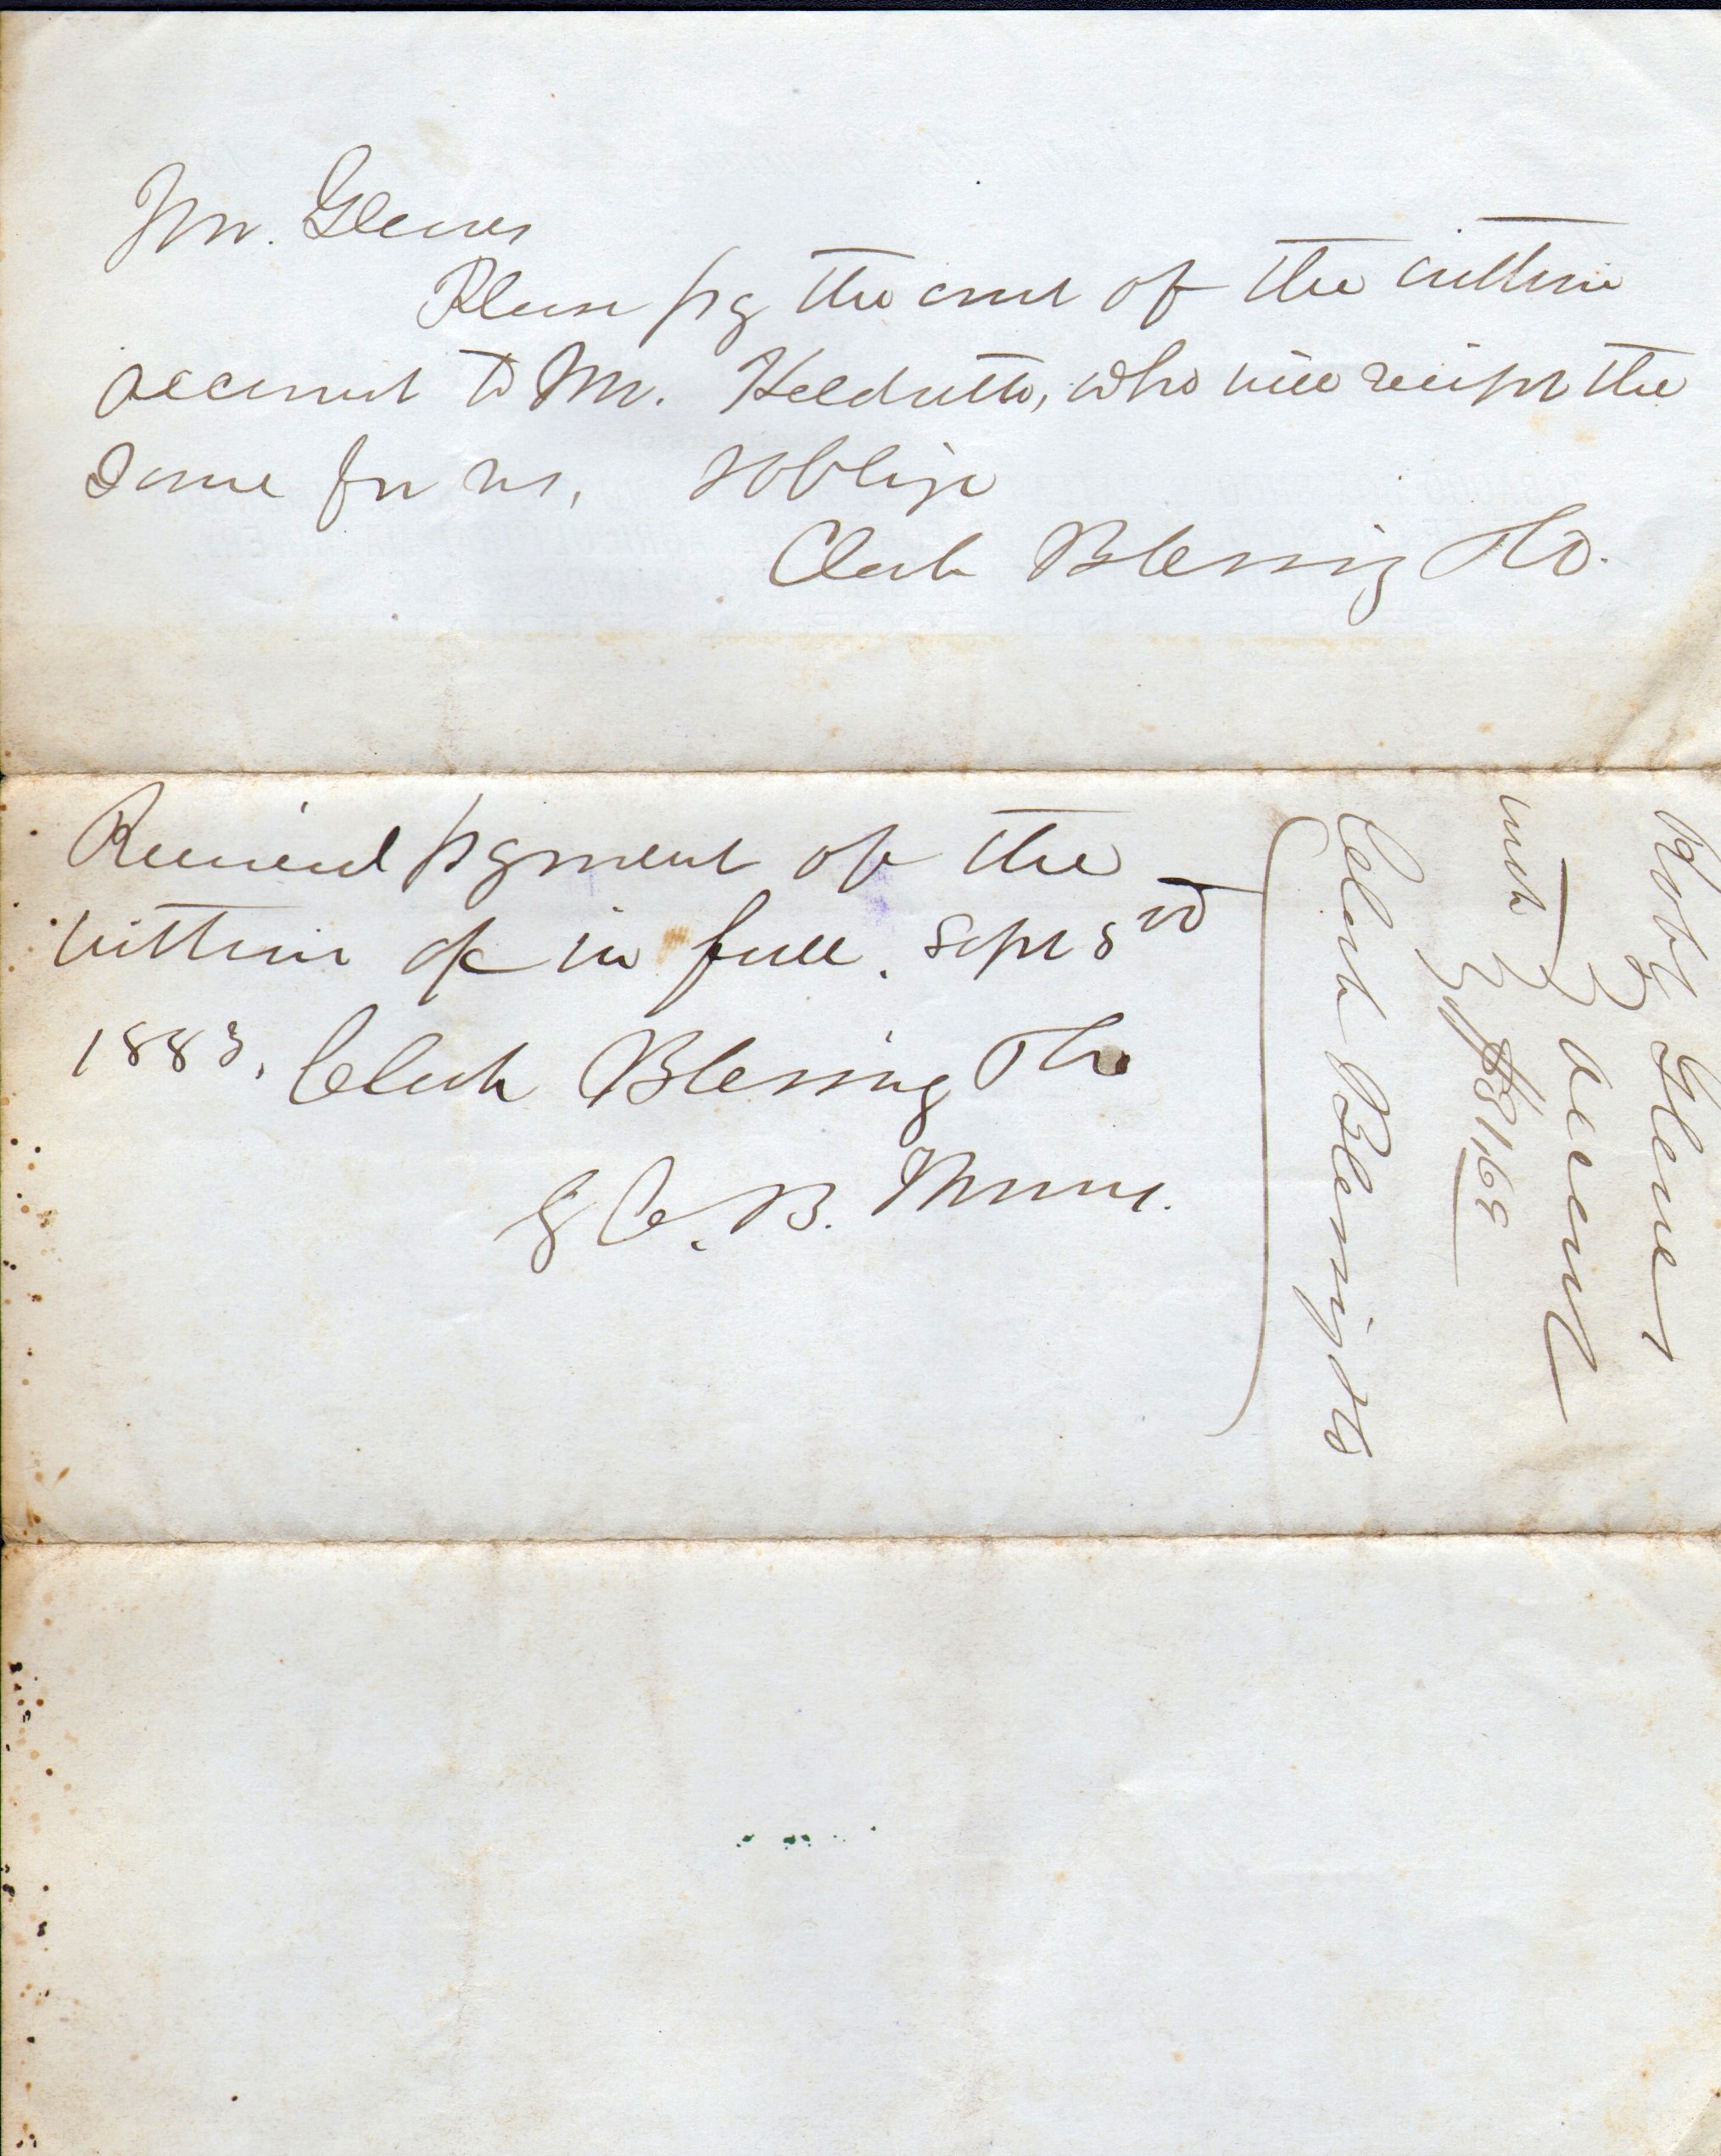 Mr. Glenn
Please pay the amt of the within
account to Mr. who will receipt the
same for us, & oblige
Clark Blessing & Co.
Received payment of the
within a/c in full. Sept 5
1883, Clark Blessing & Co
C. B.
Glenn
in
account
with
$81,68
Clark Blessing & Co